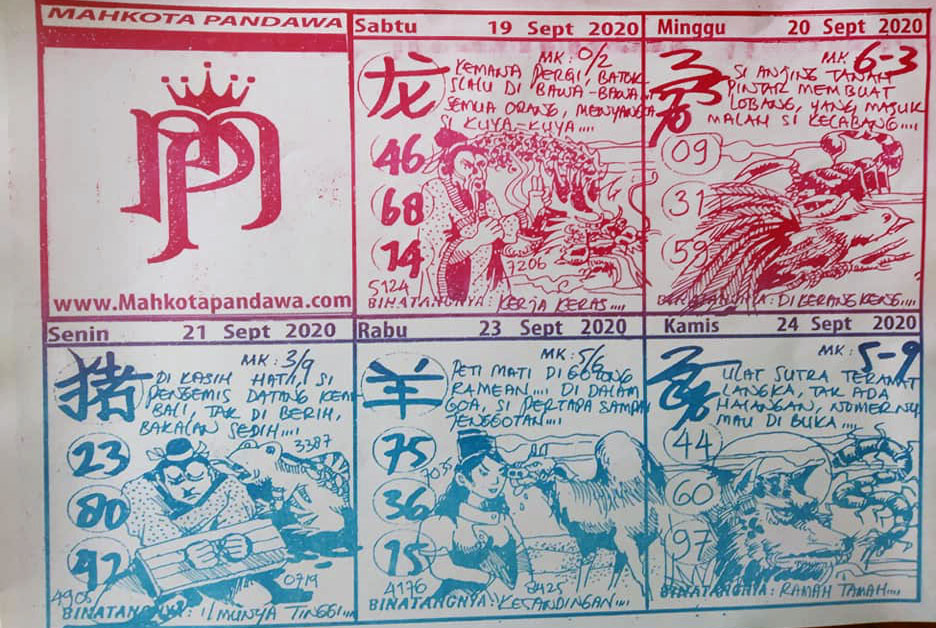 MAHKOTA PANDAWA
www.Mahkotapandawa.com
Sabtu 19 Sept 2020
MK: 0/2
龙
KEMANA PERGI, BATOK
SLALU DI BAWA-BAWA...
SEMUA ORANG, MENYANGKA
SI KUYA-KUYA....
46
68
74
5124
7206
BINATANGNYA: KERJA KERAS....
Minggu 20 Sept 2020
MK: 6-3
SI ANJING TANAH
PINTAR MEMBUAT
LOBANG, YANG MASUK
MALAH SI KELABANG....
09
31
59
BINATANGNYA: DI KERANGKENG....
Senin 21 Sept 2020
MK: 3/9
猪
DI KASIH HATI, SI
PENGEMIS DATANG KEM
BALI, TAK DI BERIH,
BAKALAN SEDIH....
23
80
92
3387
0719
BINATANGNYA: ILMUNYA TINGGI....
Rabu 23 Sept 2020
MK: 5/6
羊
PETI MATI DI GOTONG
RAMEAN.... DI DALAM
GOA, SI PERTAPA SAMPAI
JENGGOTAN....
75
36
15
4176
8425
BINATANGNYA: KESANDINGAN....
Kamis 24 Sept 2020
MK: 5-9
ULAT SUTRA TERAMAT
LANGKA, TAK ADA
HALANGAN, NOMERNYA
MAU DI BUKA....
44
60
97
BINATANGNYA: RAMAH TAMAH....